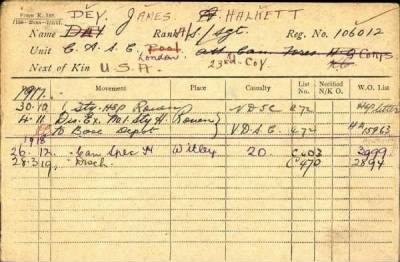 DEY, JAMES HALKETT
Name DAY Rank A/S/Sgt. Reg. No. 106012
Unit C.A.S.C. Pool att Can. Corps
London. 23rd Coy
Next of Kin U.S.A.
Movement Place Casualty List No. Notified N/K O. W.O. List
1917.
30.10 Sty Hsp Rouen VDSC 472 Hsp letter
4.11 Dis. Ex. No1 Sty H. Rouen
To Base Depot VDSC 472 H2 15963
1918
26.12. Can Spec H Witley 20. C403 3999
28.3.19. Disch. C470 2894